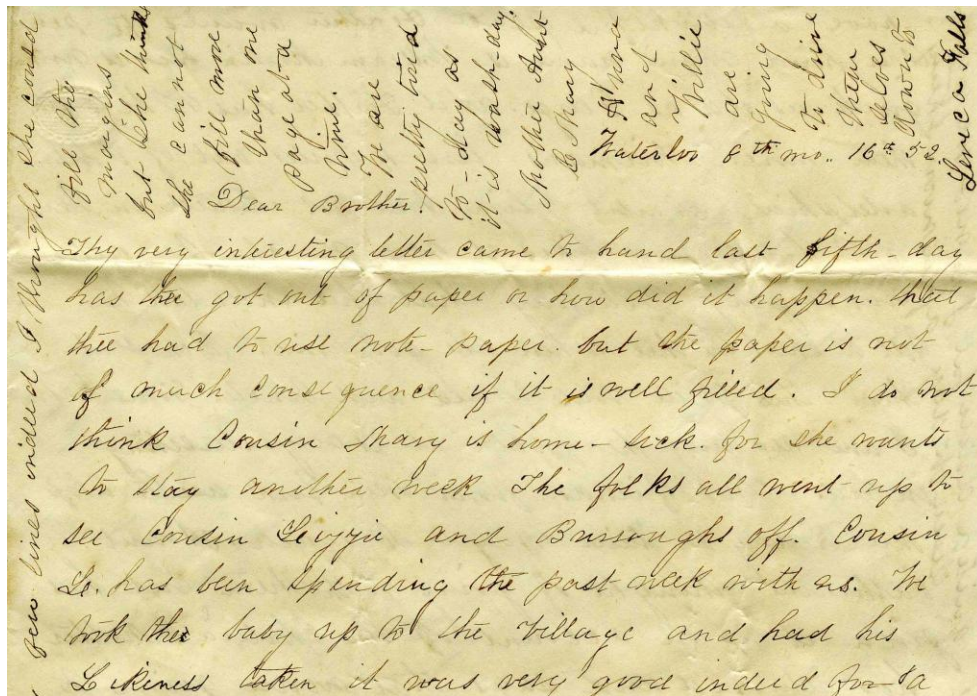 Waterloo 8th mo.. 16th 52.
Dear Brother.
Thy very interesting letter came to hand last fifth-day
has thee got out of paper or how did it happen. that
thee had to use note-paper. but the paper is not
of much consequence if it is well filled. I do not
think Cousin Mary is home-sick. for she wants
to stay another week The folks all went up to
see Cousin Lizzie and Burroughs off. Cousin
L. has been spending the past week with us. We
took the baby up to the village and had his
Likeness taken it was very good indeed for a
few lines indeed I thought she could
fill the
margins
but she thinks
she cannot
fill more
than one
page at a
time.
We are
pretty tired
to-day as
it is wash-day.
Mother Aunt
& Mary
and
Willie
are
going
to drive
them
selves
down to
Seneca Falls